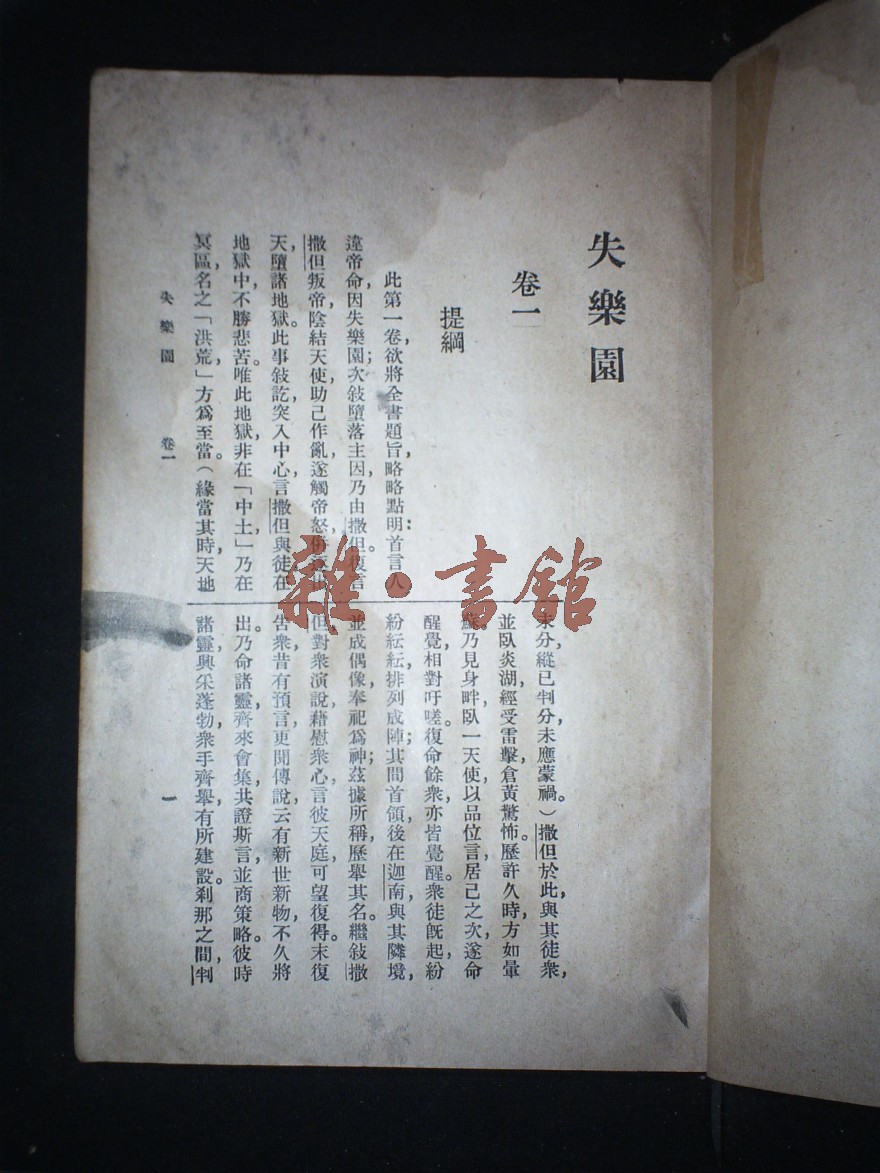 失樂園
卷一
提綱
此第一卷,欲將全書題旨,略略點明:首言人
違帝命,因失樂園;次敍墮落主因,乃由撒但。復言
撒但叛帝,陰結天使,助己作亂,遂觸帝怒,併
天,墮諸地獄。此事敍訖,突入中心,言撒但與徒,在
地獄中,不勝悲苦。唯此地獄,非在「中土」,乃在
冥區,名之「洪荒」,方爲至當。(緣當其時,天地
未分,縱已判分,未應蒙禍。)撒但於此,與其徒衆,
並臥炎湖,經受雷擊,倉黃驚怖。歷許久時,方如暈
蘇,乃見身畔,臥一天使,以品位言,居己之次,遂命
醒覺,相對吁嗟。復命餘衆,亦皆覺醒。衆徒旣起,紛
紛紜紜,排列成陣;其間首領,後在迦南,與其隣境,
並成偶像,奉祀爲神;茲據所稱,歷舉其名。繼敍撒
但,對衆演說,藉慰衆心,言彼天庭,可望復得。末復
告衆,昔有預言,更聞傳說,云有新世新物,不久將
出。乃命諸靈,齊來會集,共證斯言,並商策略。彼時
諸靈,興采蓬勃,衆手齊舉,有所建設。刹那之間,判
失樂園 卷一
一
雜·書館